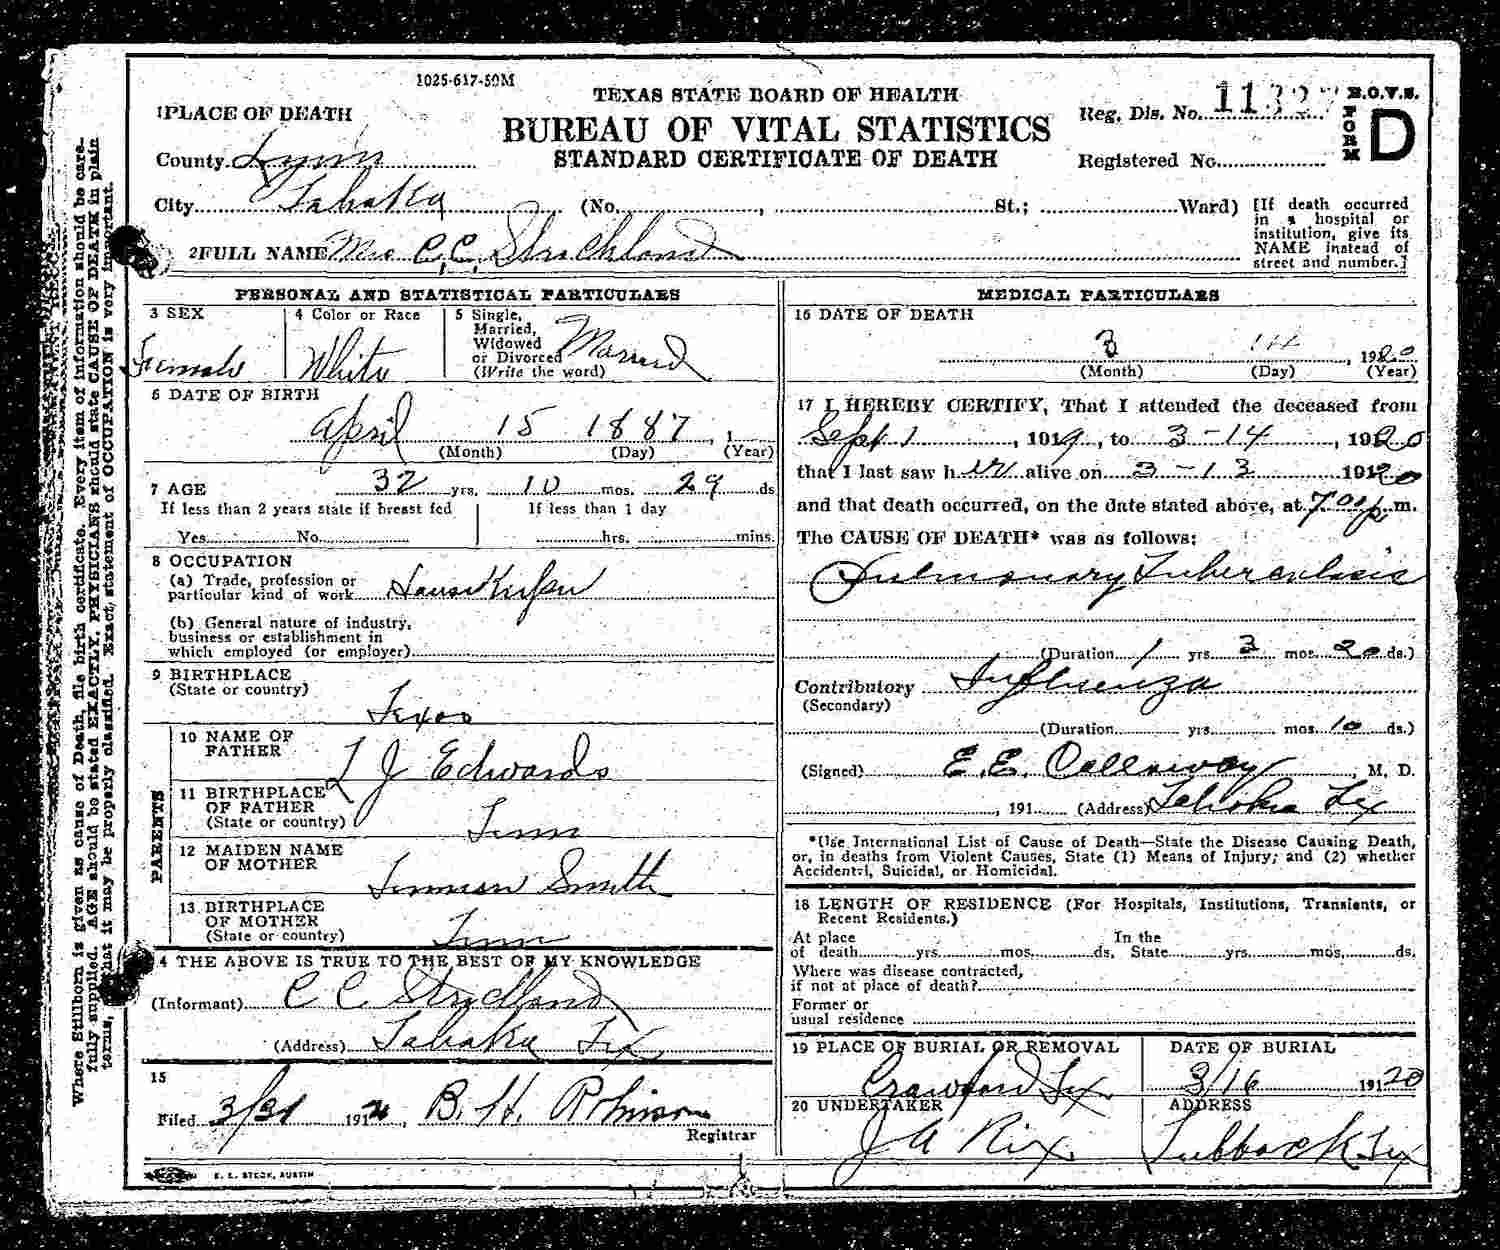 1025-617-50M
TEXAS STATE BOARD OF HEALTH
BUREAU OF VITAL STATISTICS
STANDARD CERTIFICATE OF DEATH
Reg. Dis. No.
B.O.V.S.
FORM D
Registered No.
1 PLACE OF DEATH
County Lynn
City Tahoka (No. , St.; Ward)
[If death occurred
in a hospital or
institution, give its
NAME instead of
street and number.]
2 FULL NAME Mrs C. C. Strickland
PERSONAL AND STATISTICAL PARTICULARS
3 SEX
Female
4 Color or Race
White
5 Single,
Married,
Widowed
or Divorced
(Write the word)
Married
6 DATE OF BIRTH
April 15 1887
(Month) (Day) (Year)
7 AGE 32 yrs. 10 mos. 29 ds
If less than 2 years state if breast fed
Yes No
If less than 1 day
hrs. mins.
8 OCCUPATION
(a) Trade, profession or
particular kind of work Housekeeper
(b) General nature of industry,
business or establishment in
which employed (or employer)
9 BIRTHPLACE
(State or country)
Texas
PARENTS
10 NAME OF
FATHER
J Edwards
11 BIRTHPLACE
OF FATHER
(State or country)
Tenn
12 MAIDEN NAME
OF MOTHER
Smith
13 BIRTHPLACE
OF MOTHER
(State or country)
Tenn
14 THE ABOVE IS TRUE TO THE BEST OF MY KNOWLEDGE
(Informant) C C Strickland
(Address) Tahoka Tex
15
Filed 3/31 192 , B. H. Robinson
Registrar
E. L. STECK, AUSTIN
MEDICAL PARTICULARS
16 DATE OF DEATH
3 14, 1920
(Month) (Day) (Year)
17 I HEREBY CERTIFY, That I attended the deceased from
Sept 1, 1919, to 3-14, 1920
that I last saw her alive on 3-13 1920
and that death occurred, on the date stated above, at 7:00 p m.
The CAUSE OF DEATH* was as follows:
Pulmonary Tuberculosis
(Duration 1 yrs. 3 mos. 20 ds.)
Contributory Influenza
(Secondary)
(Duration yrs. mos. 10 ds.)
(Signed) E. E. Callaway, M. D.
, 191 (Address) Tahoka Tex
*Use International List of Cause of Death—State the Disease Causing Death,
or, in deaths from Violent Causes, State (1) Means of Injury; and (2) whether
Accidental, Suicidal, or Homicidal.
18 LENGTH OF RESIDENCE (For Hospitals, Institutions, Transients, or
Recent Residents.)
At place
of death yrs. mos. ds.
In the
State yrs. mos. ds.
Where was disease contracted,
if not at place of death?
Former or
usual residence
19 PLACE OF BURIAL OR REMOVAL
Crawford Tex
DATE OF BURIAL
3/16 1920
20 UNDERTAKER
J A Rix
ADDRESS
Lubbock Tex
Where Stillborn is given as cause of Death, file birth certificate. Every item of information should be care-
fully supplied. AGE should be stated EXACTLY. PHYSICIANS should state CAUSE OF DEATH in plain
terms, that it may be properly classified. Exact statement of OCCUPATION is very important.